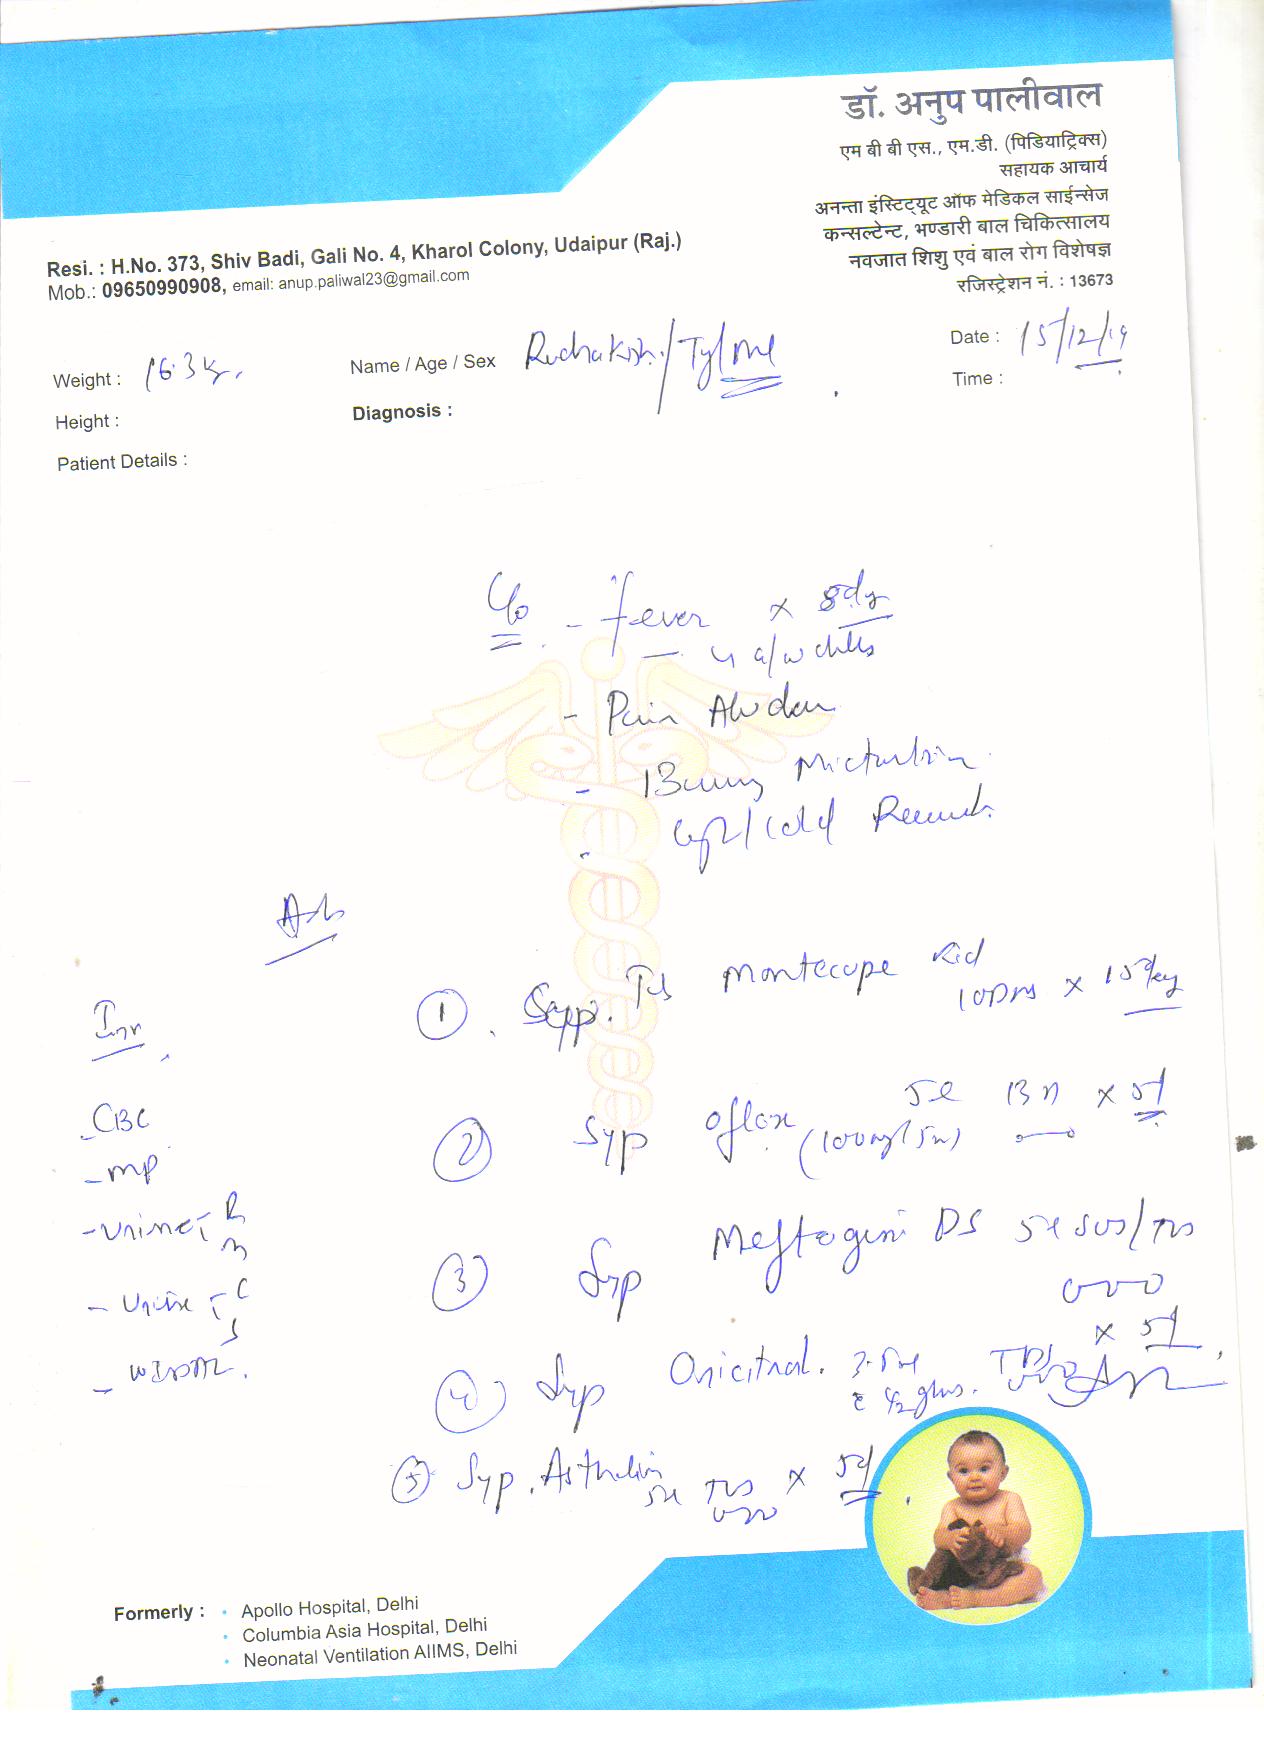 डॉ. अनुप पालीवाल
एम बी बी एस., एम.डी. (पिडियाट्रिक्स)
सहायक आचार्य
अनन्ता इंस्टिट्यूट ऑफ मेडिकल साईन्सेज
कन्सल्टेन्ट, भण्डारी बाल चिकित्सालय
नवजात शिशु एवं बाल रोग विशेषज्ञ
रजिस्ट्रेशन नं. : 13673
Resi. : H.No. 373, Shiv Badi, Gali No. 4, Kharol Colony, Udaipur (Raj.)
Mob.: 09650990908, email: anup.paliwal23@gmail.com
Weight : 16.3 kg. Name / Age / Sex Date : 15/12/19
Height : Diagnosis : Time :
Patient Details :
C/o - Fever x 8dy
a/w chills
- Pain Abdomen
- Burning Micturition
- Cold
Adv
Inv
① Tab Montecope Kid
x 15 day
- CBC
② Syp Oflox
(100mg/5ml) x 5d
- MP
- Urine - R
M
③ Syp Meftagin DS SOS/TDS
- Urine - C
S
x 5d
④ Syp Oricitral. 3.5ml
½ glass.
- WIDAL.
⑤ Syp. Asthalin 5ml TDS x 5d.
Formerly : • Apollo Hospital, Delhi
• Columbia Asia Hospital, Delhi
• Neonatal Ventilation AIIMS, Delhi